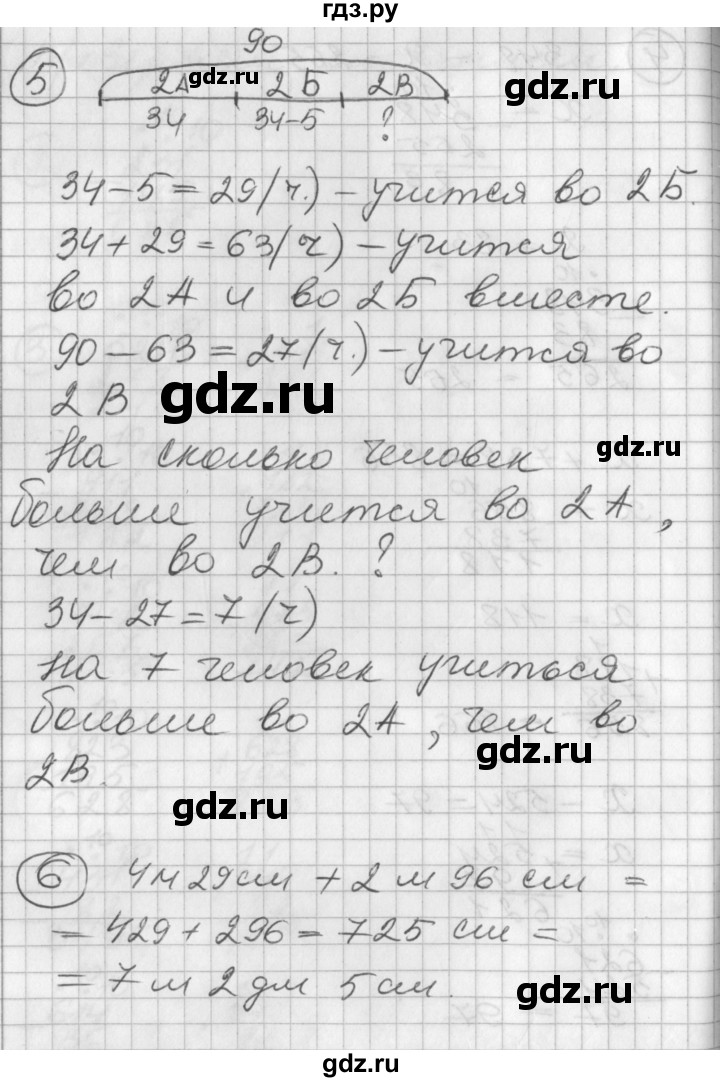 гдз.ру
90
5
2А 2Б 2В
gdz.ru
gdz.ru
34 34-5 ?
34-5=29(ч.) - учится во 2Б.
34+29=63(ч) - учится
во 2А и во 2Б вместе.
90-63=27(ч.) - учится во
2В
gdz.ru
На сколько человек
gdz.ru
больше учится во 2А,
чем во 2В.?
34-27=7(ч)
На 7 человек учиться
больше во 2А, чем во
gdz.ru
2В.
gdz.ru
6 4м 29см + 2 м 96 см =
= 429 + 296 = 725 см =
= 7 м 2 дм 5 см.
gdz.ru
gdz.ru